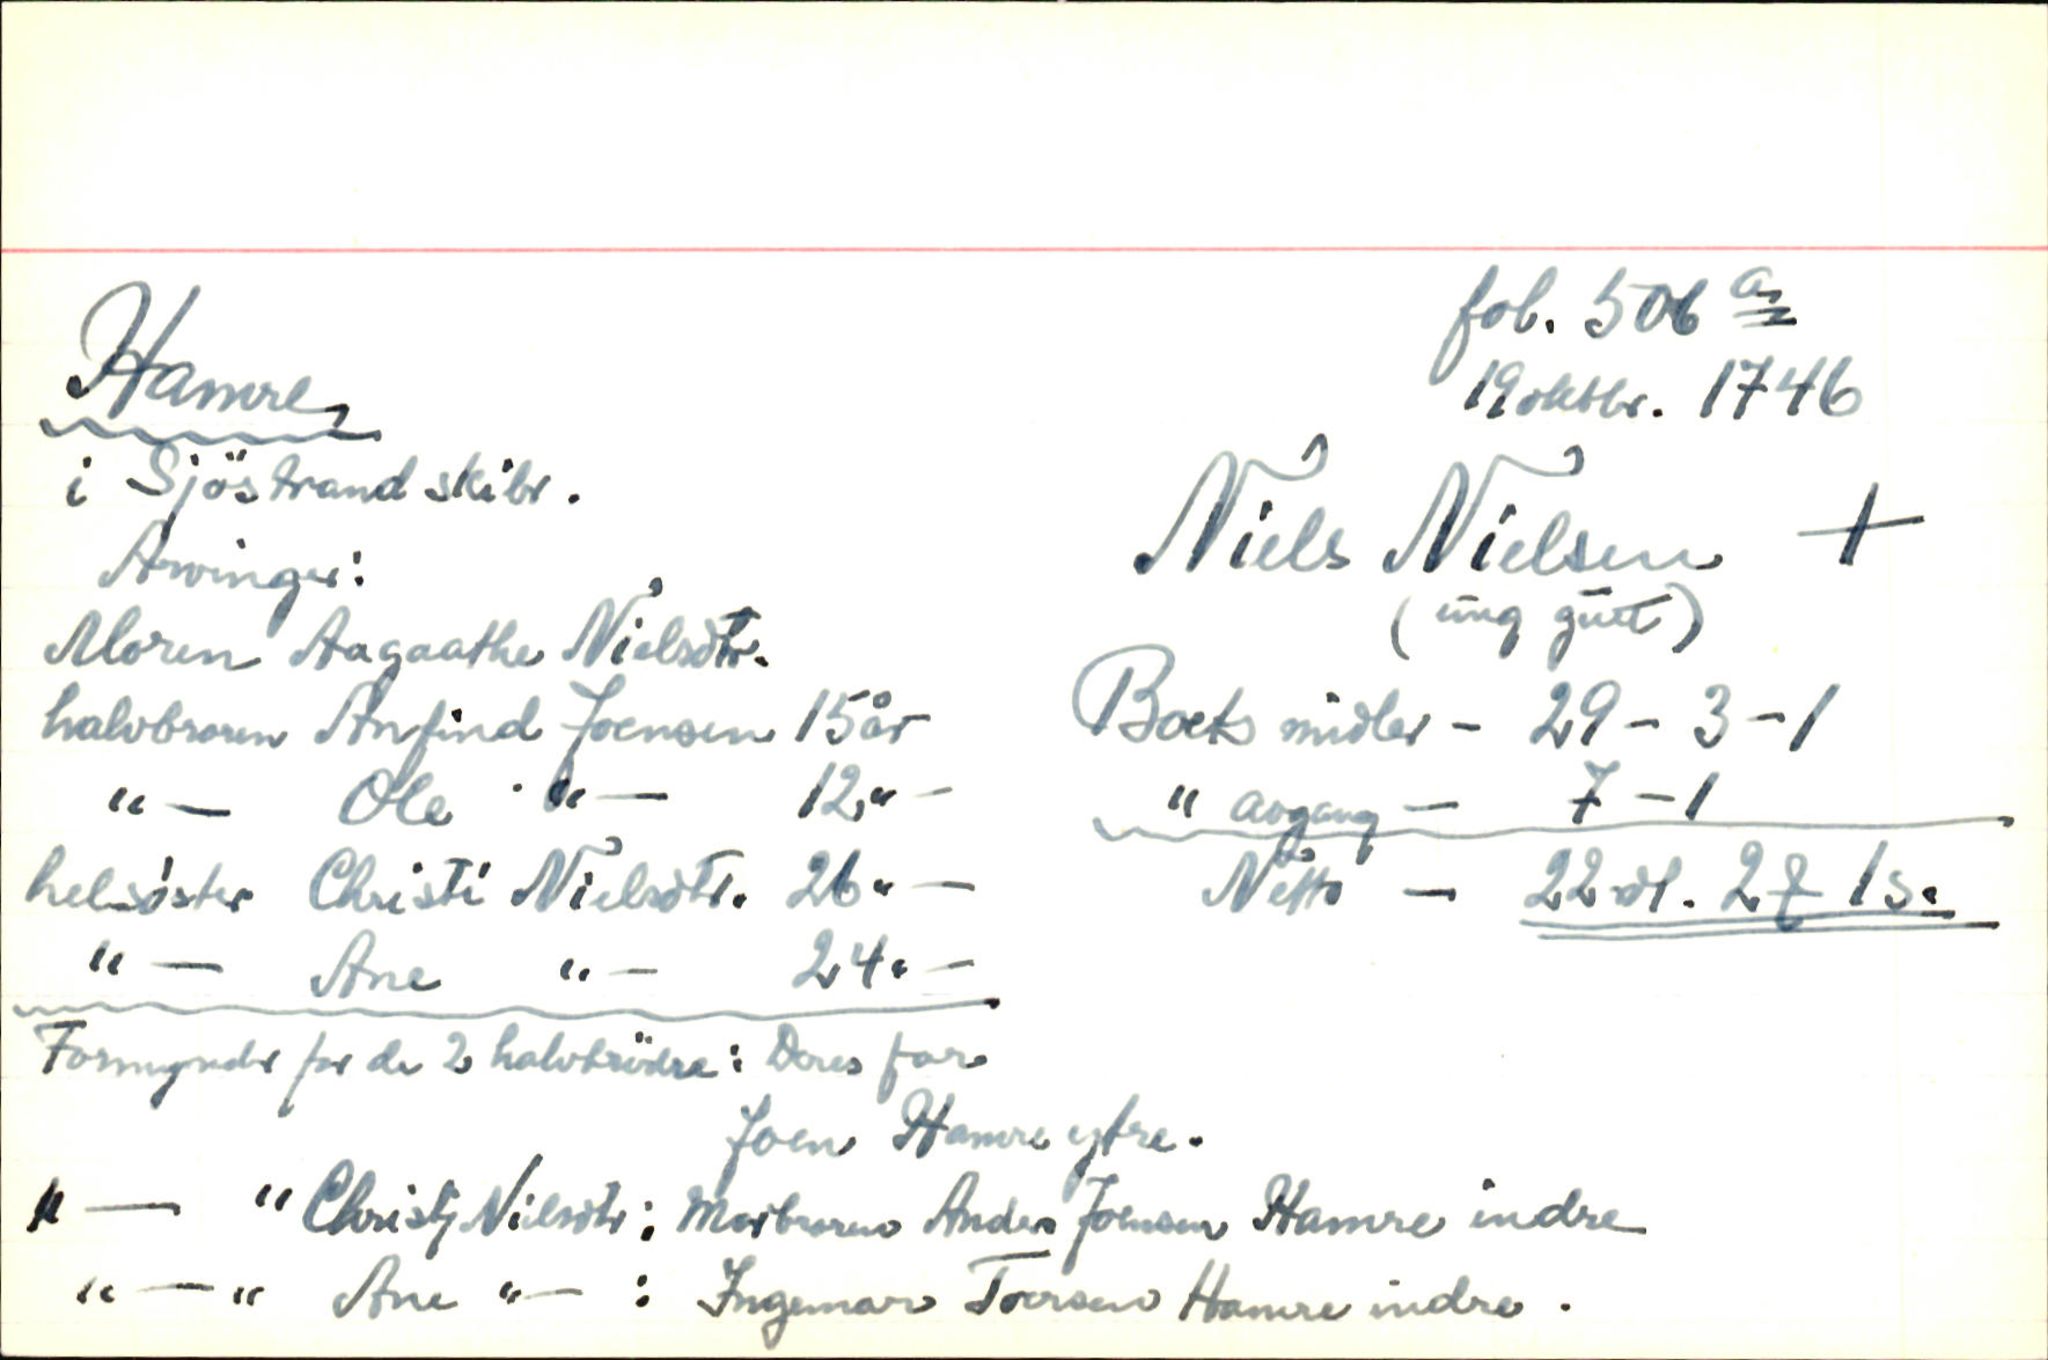 fol. 506 a
Hamre
19 oktbr. 1746
i Sjöstrand skibr.
Niels Nielsen +
Arvinger:
(ung gutt)
Moren Aagaathe Nielsdtr.
halvbroren Anfind Joensen 15 år
"— Ole "— 12 "—
helsöster Christi Nielsdtr. 26 "—
"— Ane "— 24 "—
Boets midler - 29 - 3 - 1
" avgang — 7 - 1
Netto — 22 dl. 2 ƶ 1 s.
Formynder for de 2 halvbrödre: Deres far
Joen Hamre ytre.
"— " Christj Nielsdtr: Morbroren Anders Joensen Hamre indre
"— " Ane "— : Ingemar Toersen Hamre indre.